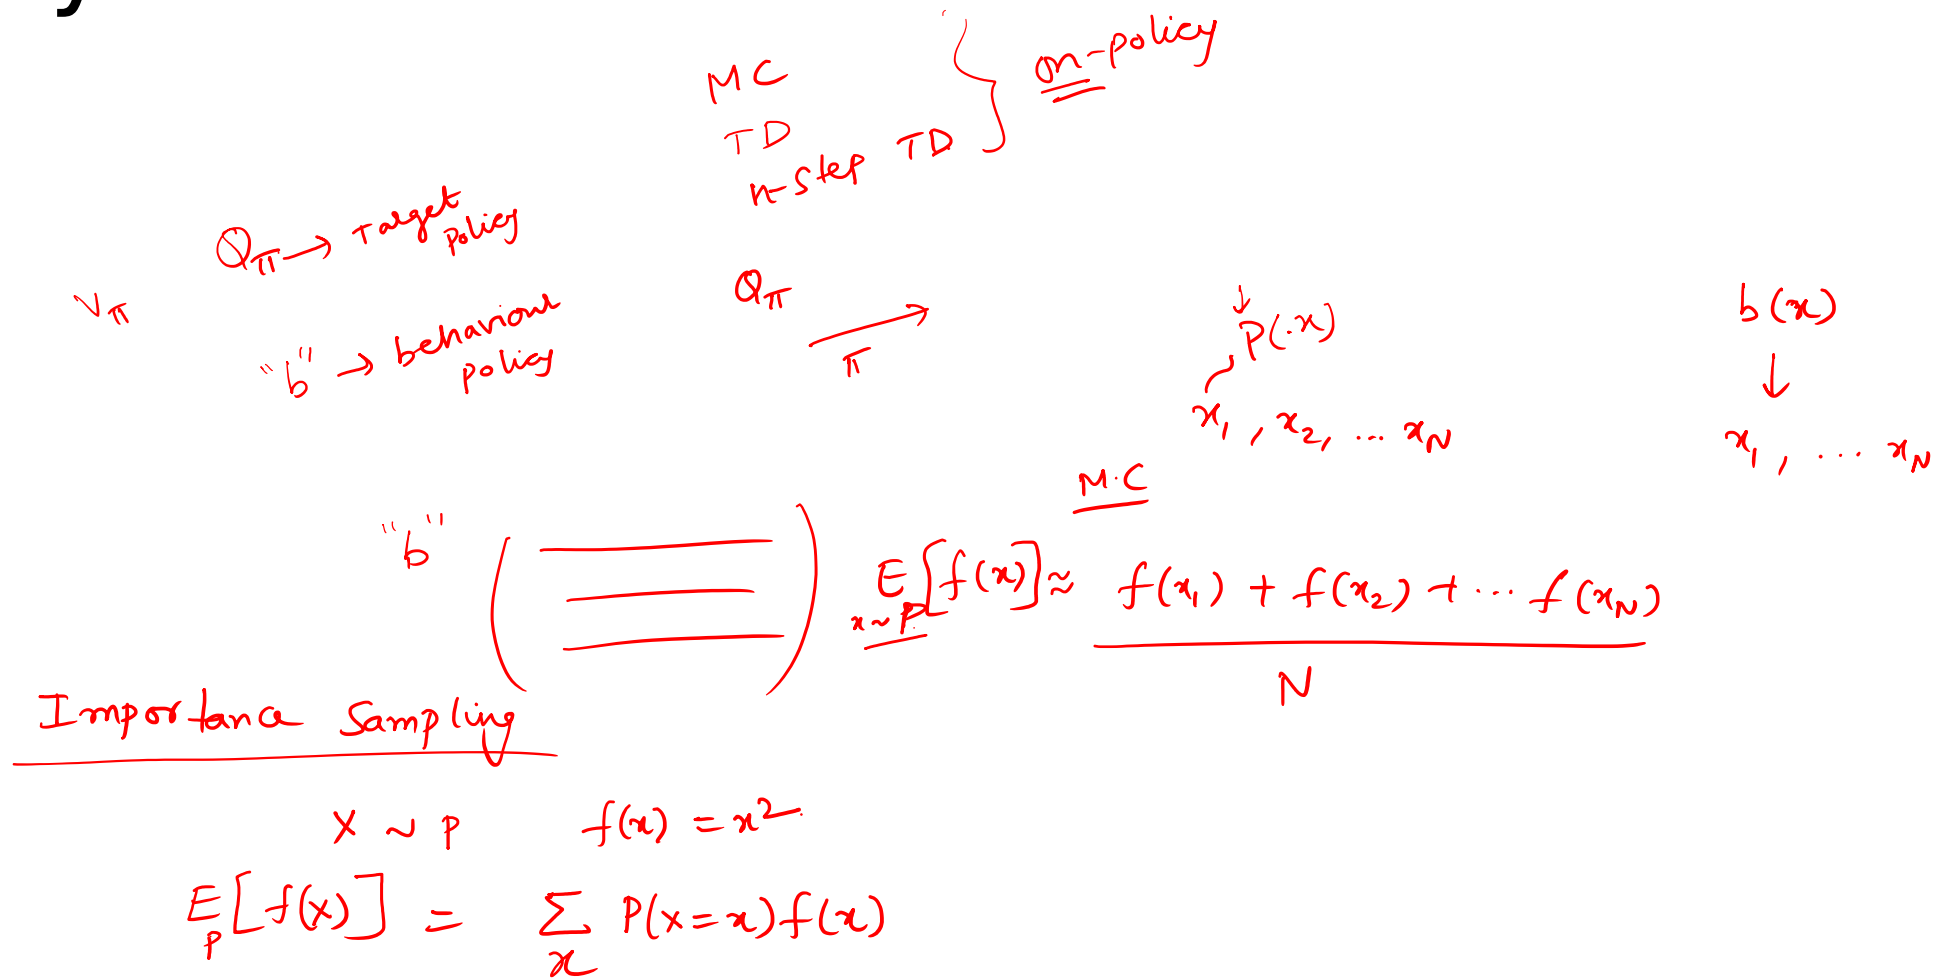 MC
TD
n-step TD
on-policy
Qπ → Target policy
Vπ
"b" → behaviour policy
Qπ
π
P(x)
x₁, x₂, ... x_N
b(x)
↓
x₁, ... x_N
M.C
"b"
E_{x~P}[f(x)] ≈ (f(x₁) + f(x₂) + ... f(x_N)) / N
Importance Sampling
X ~ P f(x) = x²
E_P[f(X)] = Σ_x P(X=x)f(x)